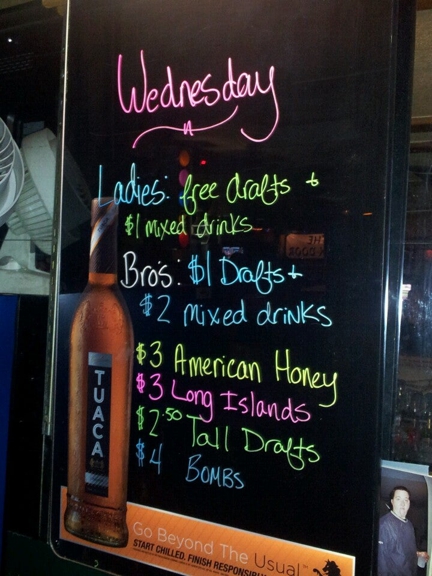 Wednesday
Ladies: free drafts +
$1 mixed drinks
Bro's: $1 Drafts +
$2 mixed drinks
$3 American Honey
$3 Long Islands
$2.50 Tall Drafts
$4 BOMBS
TUACA
Go Beyond The Usual™
START CHILLED. FINISH RESPONSIBLY